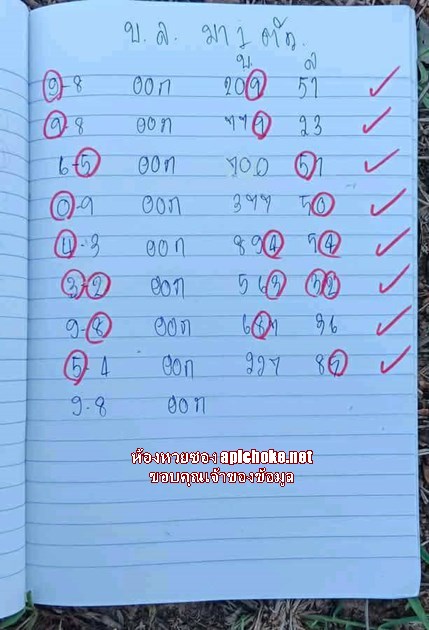 บ. ล. มา 1 ตัว
บ. ล
9-8 ออก 209 51
9-8 ออก 779 23
6-5 ออก 700 57
0-9 ออก 377 50
4-3 ออก 894 54
3-2 ออก 563 32
9-8 ออก 687 36
5-4 ออก 227 85
9-8 ออก
ห้องหวยซอง apichoke.net
ขอบคุณเจ้าของข้อมูล